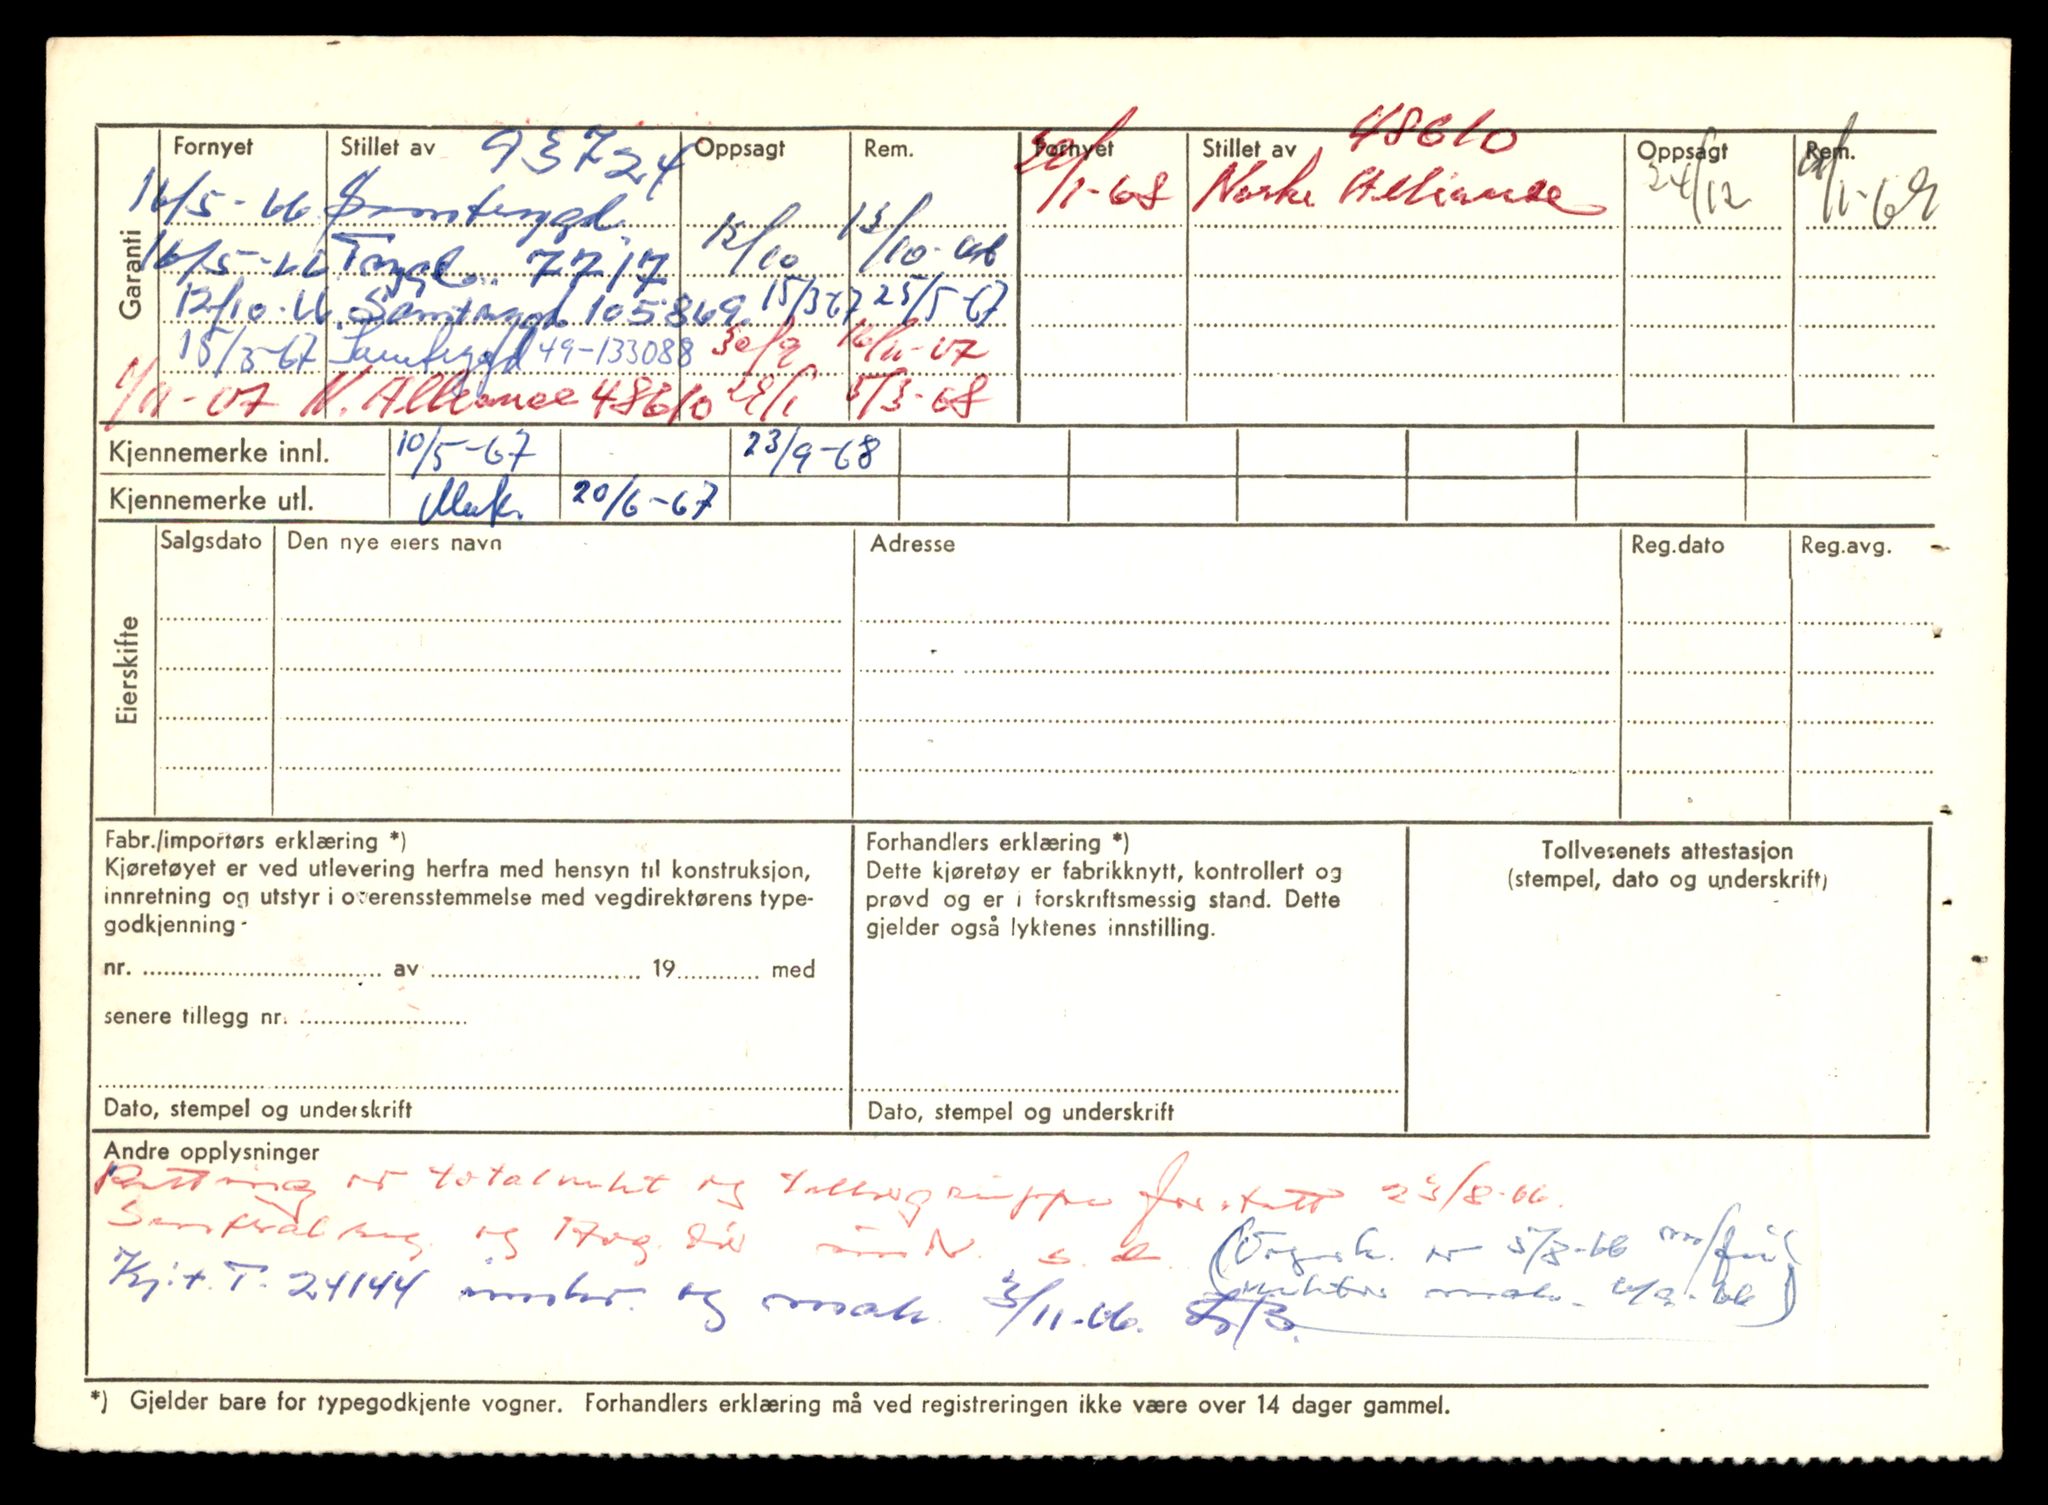 Garanti
Fornyet Stillet av 93724 Oppsagt Rem.
16/5-66 Samtrygd.
16/5-66 Trygd. 7717 12/10 13/10-66
12/10-66. Samtrygd. 105869. 15/3-67 25/5-67
15/3-67 Samtrygd 49-133088 30/9 16/11-67
1/11-67 N. Alliance 48610 29/1 5/3-68
Fornyet Stillet av 48610 Oppsagt Rem.
/1-68 Norske Alliance 24/12 /1-69
Kjennemerke innl. 10/5-67 23/9-68
Kjennemerke utl. 20/6-67
Eierskifte
Salgsdato Den nye eiers navn Adresse Reg.dato Reg.avg.
Fabr./importørs erklæring *)
Kjøretøyet er ved utlevering herfra med hensyn til konstruksjon,
innretning og utstyr i overensstemmelse med vegdirektørens type-
godkjenning
nr. av 19 med
senere tillegg nr.
Dato, stempel og underskrift
Forhandlers erklæring *)
Dette kjøretøy er fabrikknytt, kontrollert og
prøvd og er i forskriftsmessig stand. Dette
gjelder også lyktenes innstilling.
Dato, stempel og underskrift
Tollvesenets attestasjon
(stempel, dato og underskrift)
Andre opplysninger
Retting av totalvekt og forstått 23/8-66.
og s. d. 5/8-66
Kj.t. T. 24144 innkr. og mak. 3/11-66.
*) Gjelder bare for typegodkjente vogner. Forhandlers erklæring må ved registreringen ikke være over 14 dager gammel.